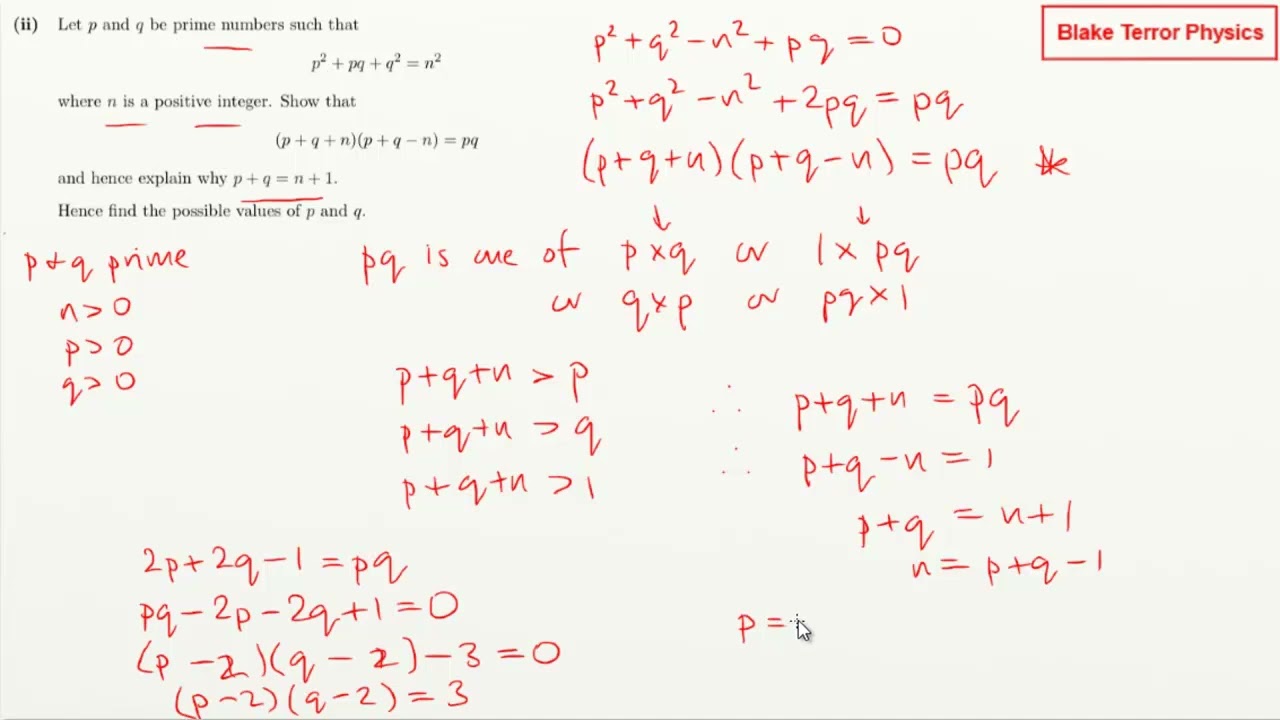 (ii) Let p and q be prime numbers such that
p² + pq + q² = n²
where n is a positive integer. Show that
(p + q + n)(p + q − n) = pq
and hence explain why p + q = n + 1.
Hence find the possible values of p and q.
Blake Terror Physics
p² + q² − n² + pq = 0
p² + q² − n² + 2pq = pq
(p + q + n)(p + q − n) = pq *
↓ ↓
p + q prime
n > 0
p > 0
q > 0
pq is one of p × q or 1 × pq
or q × p or pq × 1
p + q + n > p
p + q + n > q
p + q + n > 1
∴ p + q + n = pq
∴ p + q − n = 1
p + q = n + 1
n = p + q − 1
2p + 2q − 1 = pq
pq − 2p − 2q + 1 = 0
(p − 2)(q − 2) − 3 = 0
(p − 2)(q − 2) = 3
p =